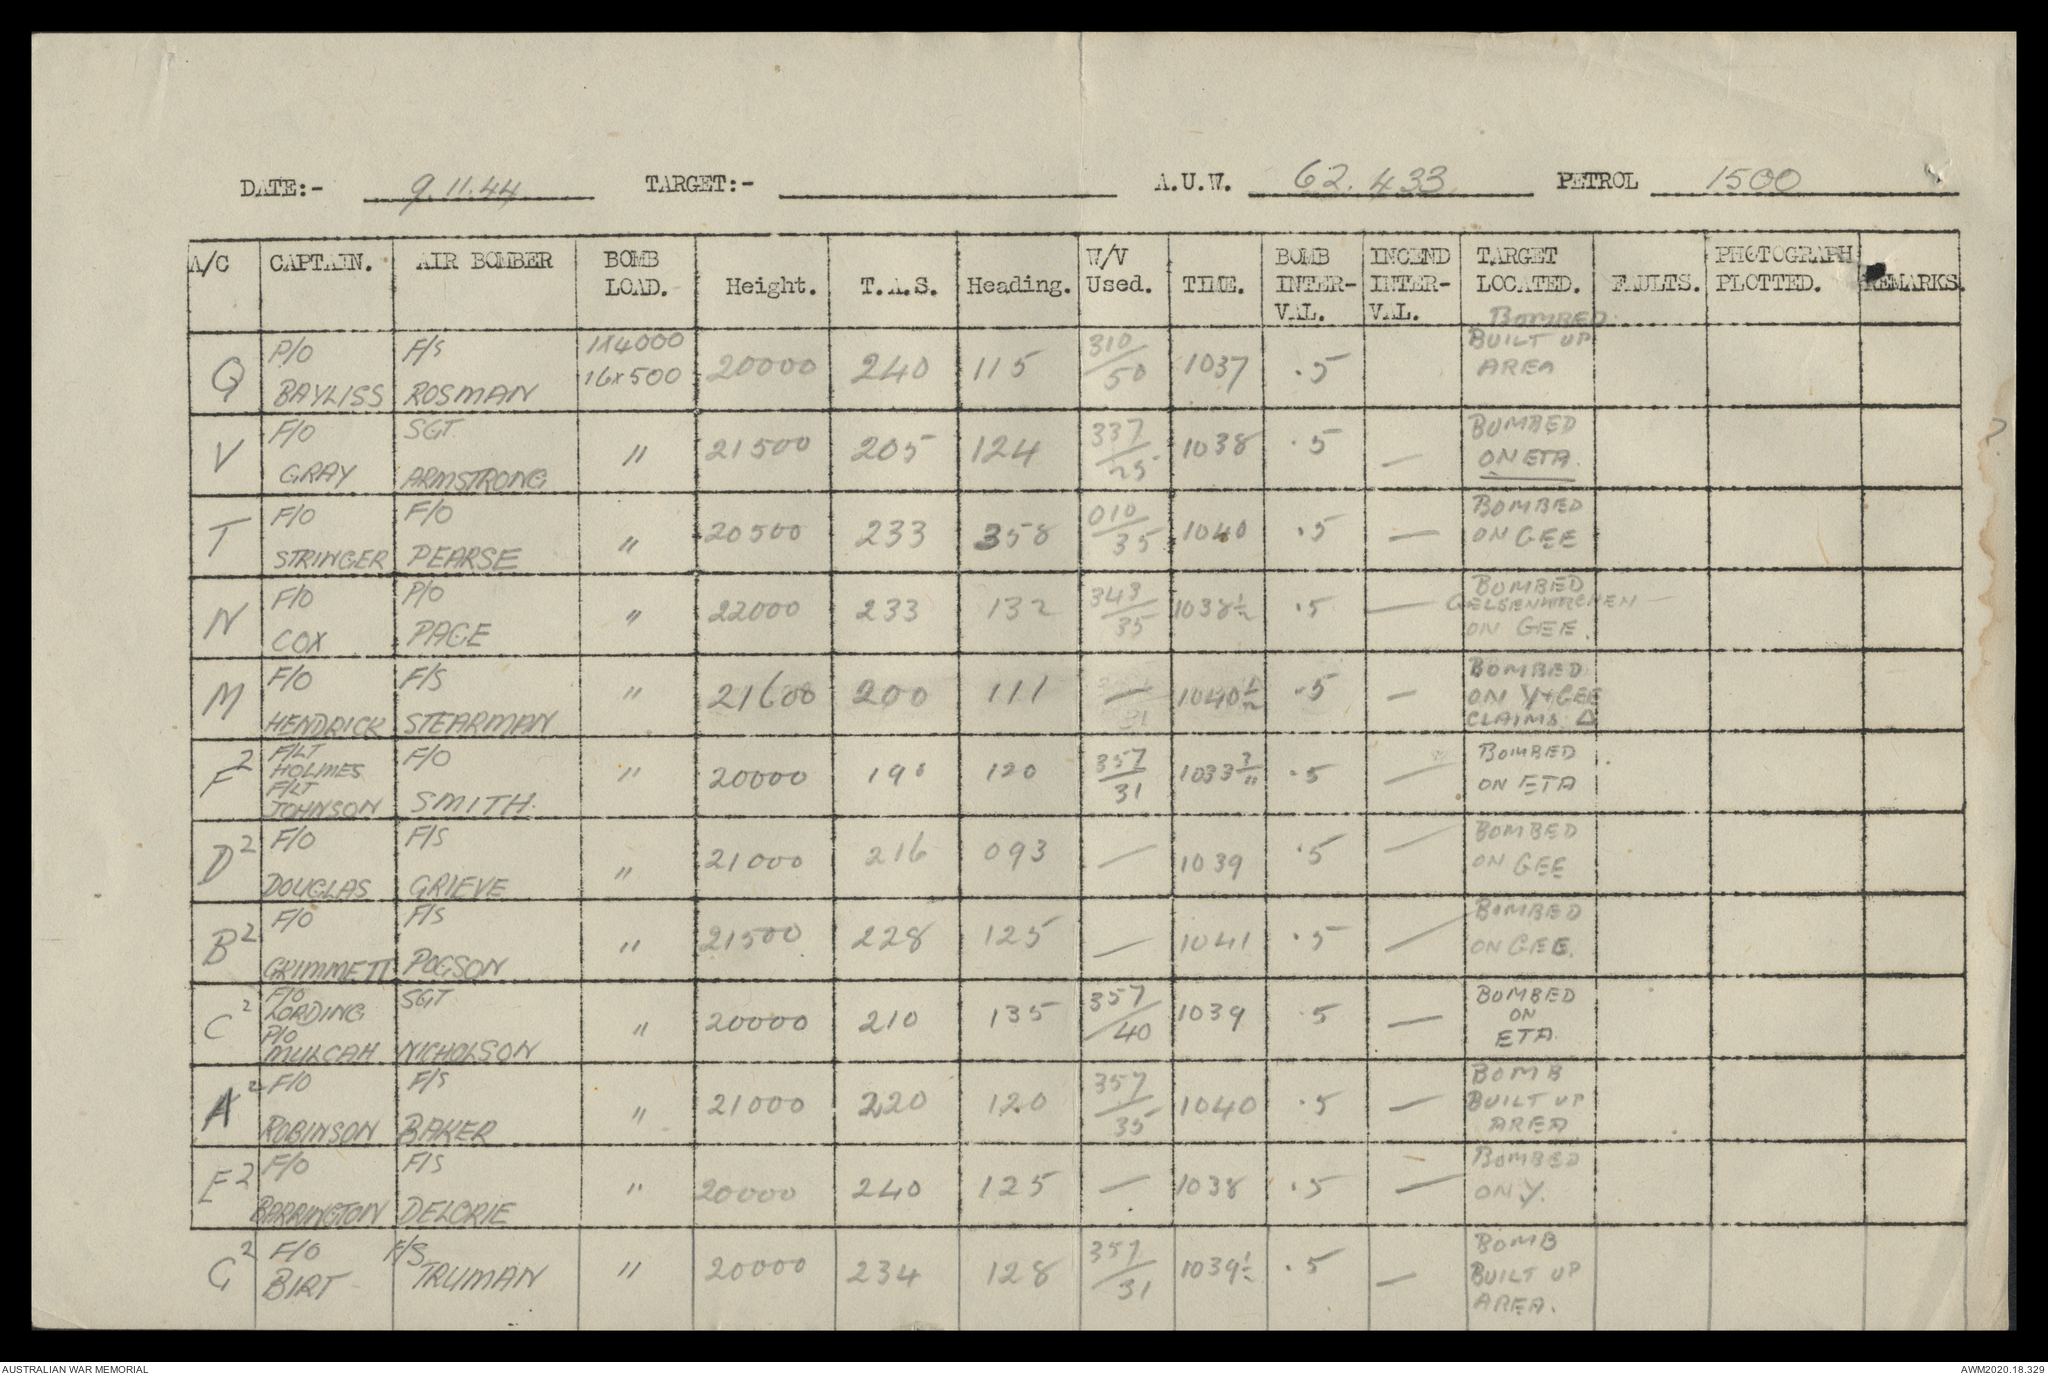 DATE:- 9.11.44 TARGET:- A.U.W. 62.433 PETROL 1500
A/C CAPTAIN. AIR BOMBER BOMB LOAD. Height. T.A.S. Heading. W/V Used. TIME. BOMB INTER-VAL. INCEND INTER-VAL. TARGET LOCATED. FAULTS. PHOTOGRAPH PLOTTED. REMARKS.
Q P/O BAYLISS F/S ROSMAN 1x4000 16x500 20000 240 115 310/50 1037 .5 BOMBED BUILT UP AREA
V F/O GRAY SGT ARMSTRONG " 21500 205 124 337/25 1038 .5 — BOMBED ON ETA. ?
T F/O STRINGER F/O PEARSE " 20500 233 358 010/35 1040 .5 — BOMBED ON GEE
N F/O COX P/O PAGE " 22000 233 132 343/35 1038½ .5 — BOMBED GELSENKIRCHEN ON GEE.
M F/O HENDRICK F/S STEARMAN " 21600 200 111 — 31 1040½ .5 — BOMBED ON Y+GEE CLAIMS Δ
F² F/LT HOLMES F/LT JOHNSON F/O SMITH. " 20000 190 120 357/31 1033 .5 — BOMBED ON ETA
D² F/O DOUGLAS F/S GRIEVE " 21000 216 093 — 1039 .5 — BOMBED ON GEE
B² F/O GRIMMETT F/S POGSON " 21500 228 125 — 1041 .5 — BOMBED ON GEE.
C² F/O LORDING P/O MULCAH SGT NICHOLSON " 20000 210 135 357/40 1039 .5 — BOMBED ON ETA.
A² F/O ROBINSON F/S BAKER " 21000 220 120 357/35 1040 .5 — BOMB BUILT UP AREA
E² F/O BARRINGTON F/S DELORIE " 20000 240 125 — 1038 .5 — BOMBED ON Y.
G² F/O BIRT F/S TRUMAN " 20000 234 128 357/31 1039½ .5 — BOMB BUILT UP AREA.
AUSTRALIAN WAR MEMORIAL AWM2020.18.329